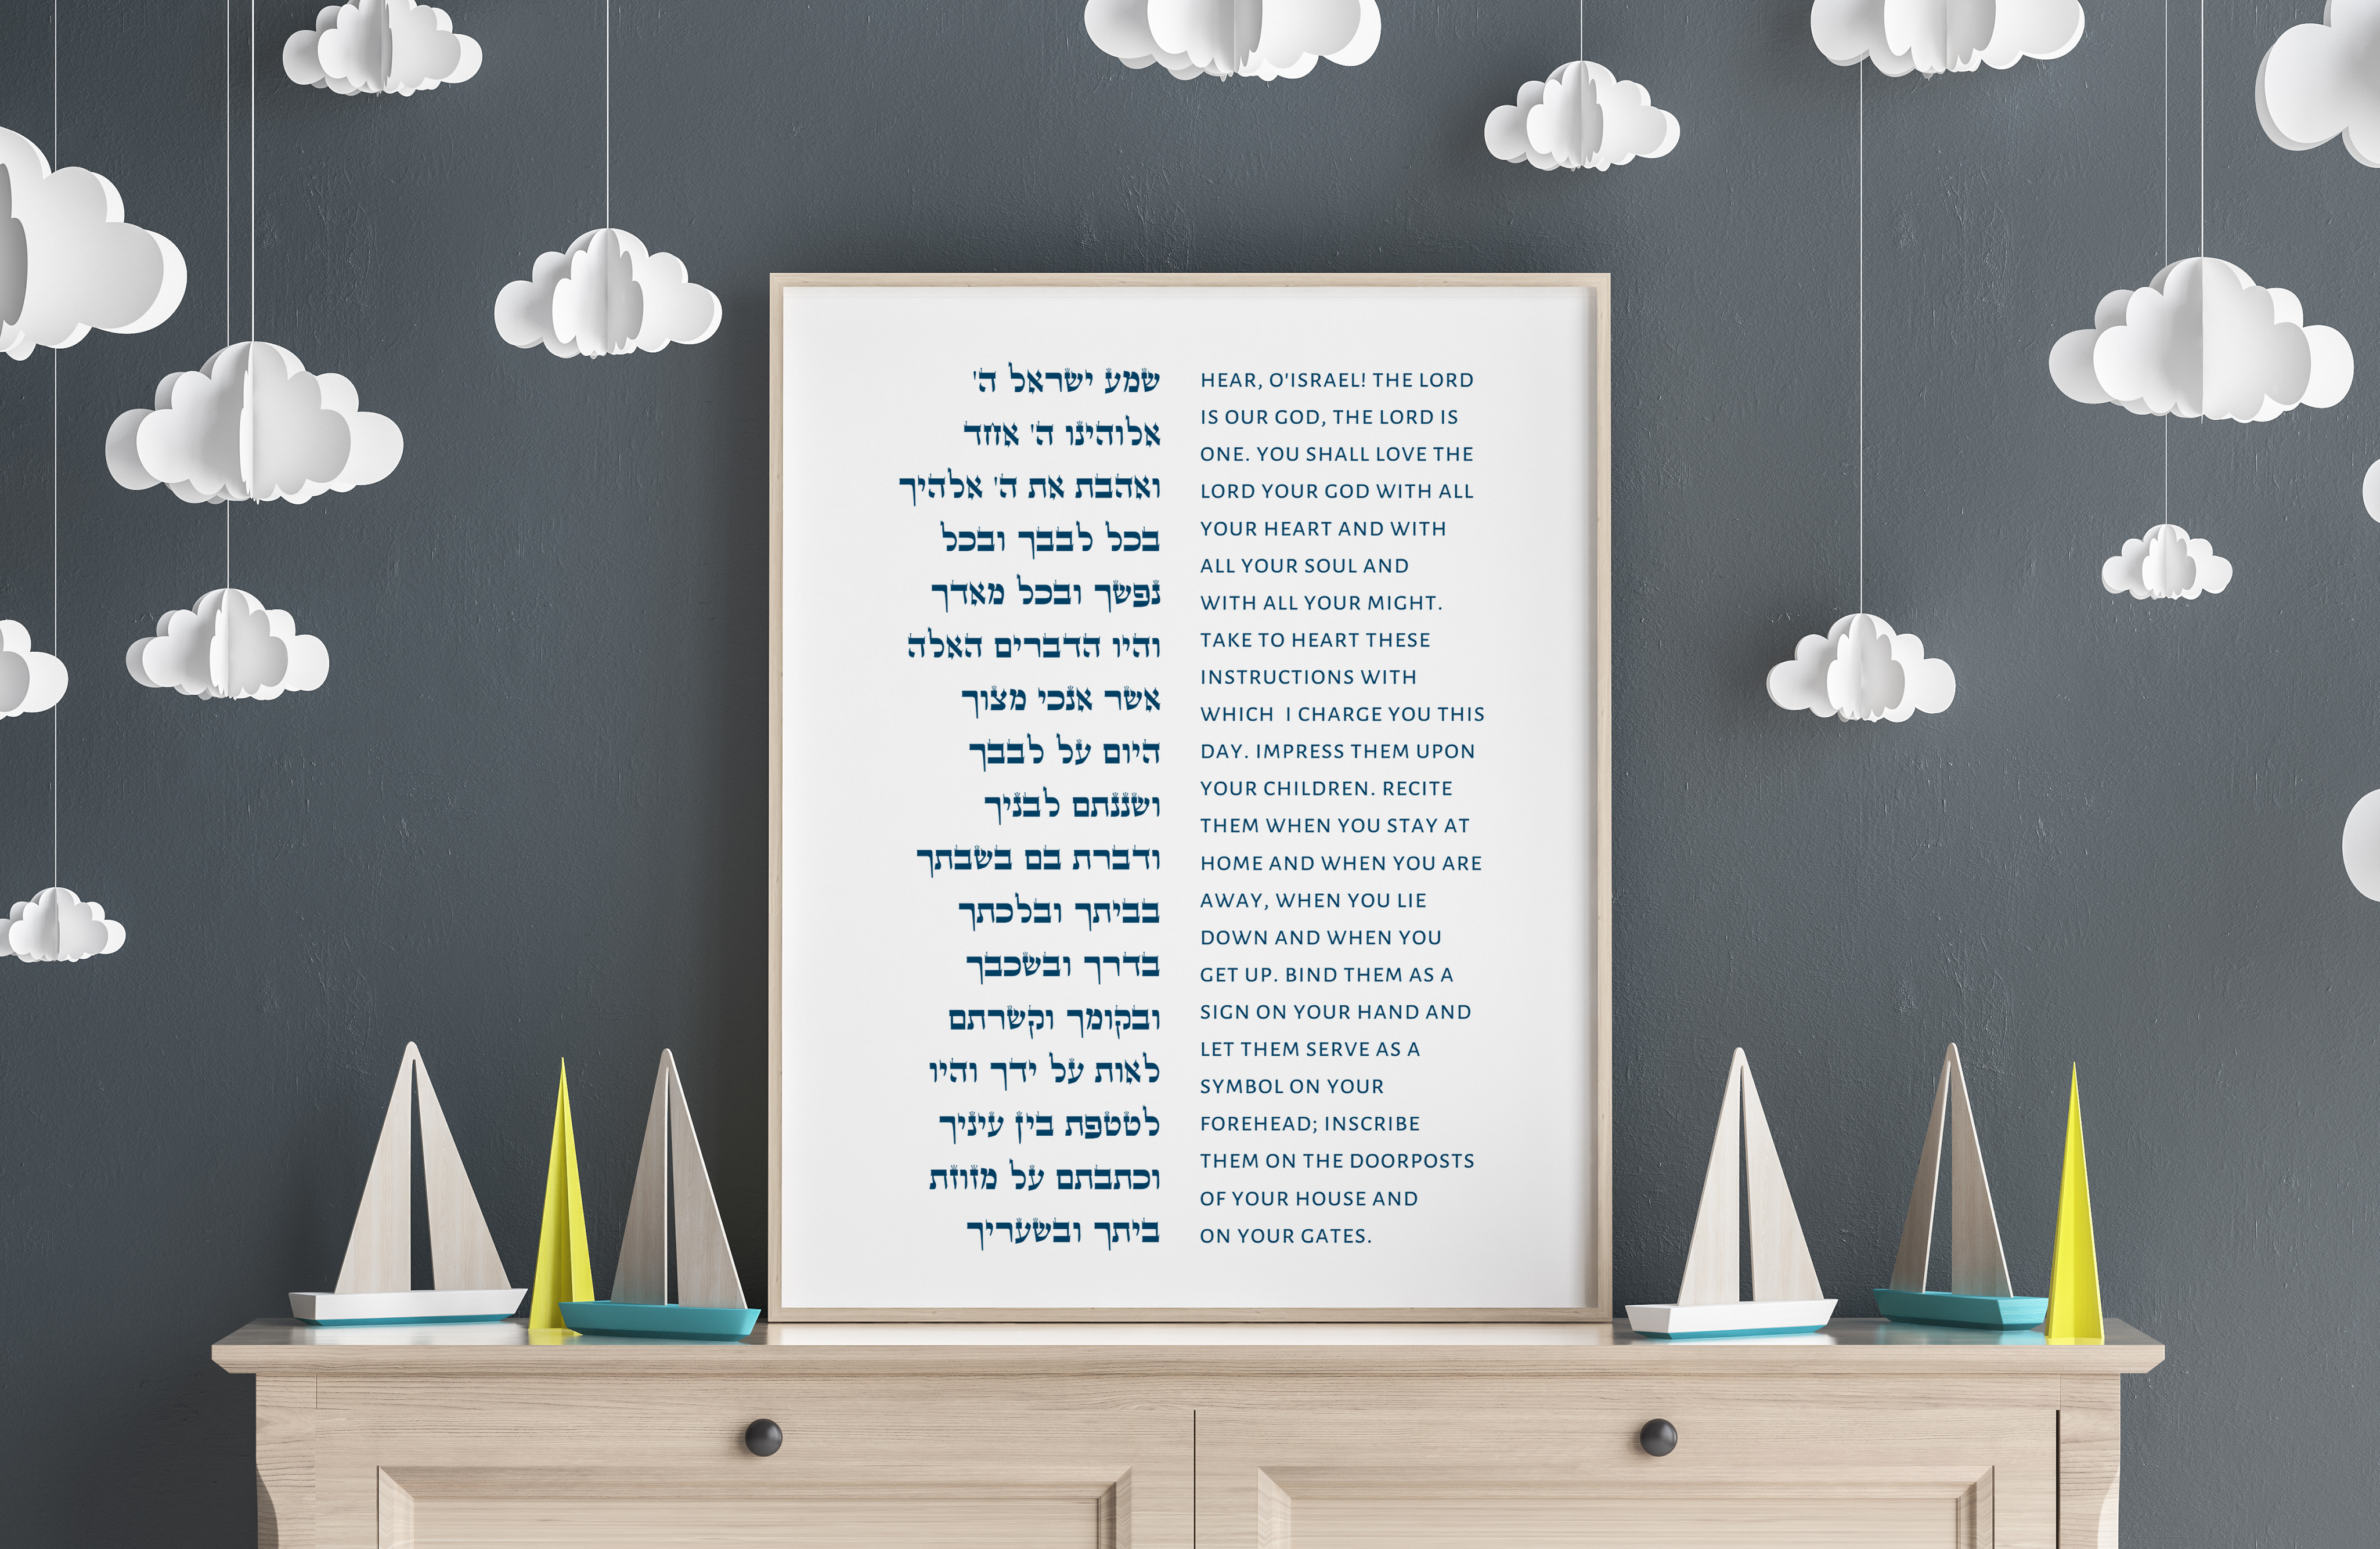 שמע ישראל ה'
אלוהינו ה' אחד
ואהבת את ה' אלהיך
בכל לבבך ובכל
נפשך ובכל מאדך
והיו הדברים האלה
אשר אנכי מצוך
היום על לבבך
ושננתם לבניך
ודברת בם בשבתך
בביתך ובלכתך
בדרך ובשכבך
ובקומך וקשרתם
לאות על ידך והיו
לטטפת בין עיניך
וכתבתם על מזוזת
ביתך ובשעריך
HEAR, O'ISRAEL! THE LORD
IS OUR GOD, THE LORD IS
ONE. YOU SHALL LOVE THE
LORD YOUR GOD WITH ALL
YOUR HEART AND WITH
ALL YOUR SOUL AND
WITH ALL YOUR MIGHT.
TAKE TO HEART THESE
INSTRUCTIONS WITH
WHICH I CHARGE YOU THIS
DAY. IMPRESS THEM UPON
YOUR CHILDREN. RECITE
THEM WHEN YOU STAY AT
HOME AND WHEN YOU ARE
AWAY, WHEN YOU LIE
DOWN AND WHEN YOU
GET UP. BIND THEM AS A
SIGN ON YOUR HAND AND
LET THEM SERVE AS A
SYMBOL ON YOUR
FOREHEAD; INSCRIBE
THEM ON THE DOORPOSTS
OF YOUR HOUSE AND
ON YOUR GATES.